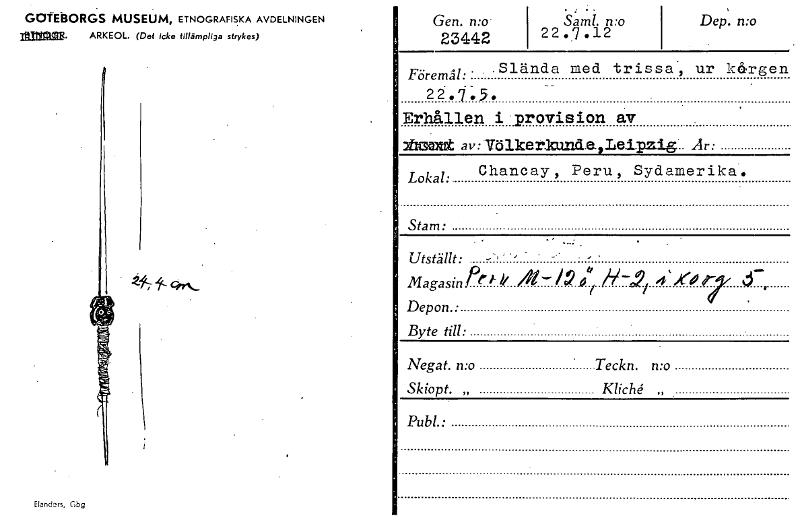 GÖTEBORGS MUSEUM, ETNOGRAFISKA AVDELNINGEN
ARKEOL. (Det icke tillämpliga strykes)
24,4 cm
Elanders, Gbg
Gen. n:o Saml. n:o Dep. n:o
23442 22.7.12
Föremål: Slända med trissa, ur korgen
22.7.5.
Erhållen i provision av
av: Völkerkunde,Leipzig År:
Lokal: Chancay, Peru, Sydamerika.
Stam:
Utställt:
Magasin Peru M-12ö, H-2, i korg 5.
Depon.:
Byte till:
Negat. n:o Teckn. n:o
Skiopt. „ Kliché „
Publ.: